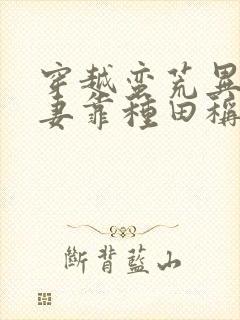 穿越蛮荒異
妻靠種田稱
斷背藍山